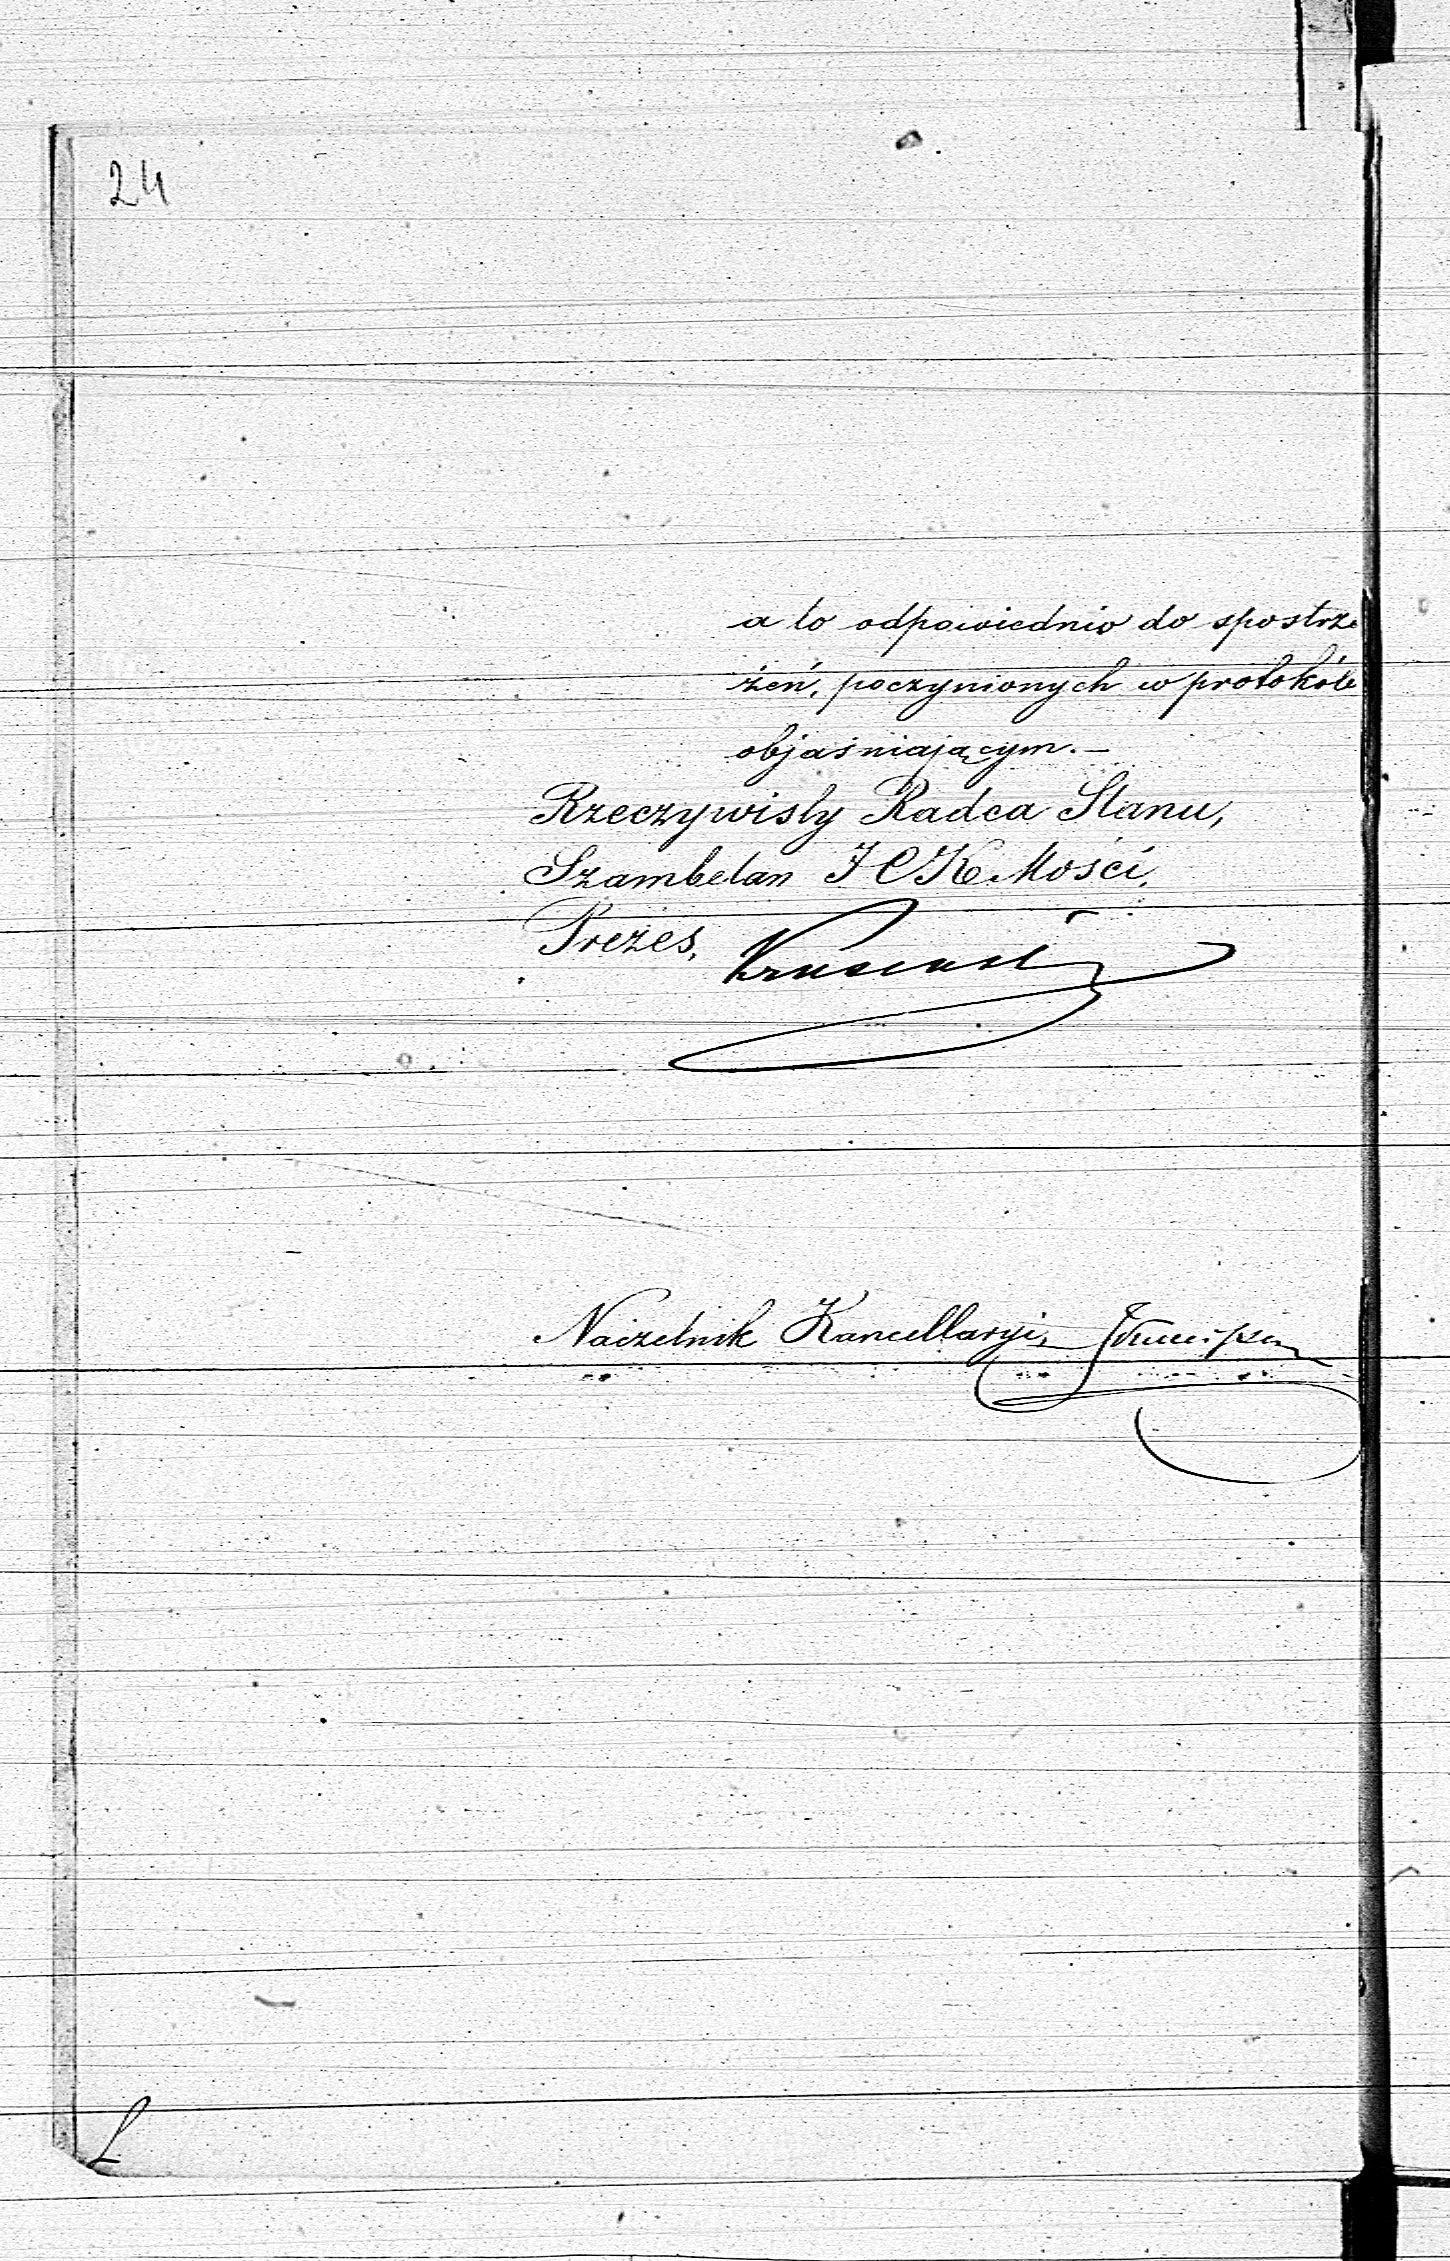 24
a to odpowiednio do spostrze
żeń, poczynionych w protokóle
objaśniającym.—
Rzeczywisty Radca Stanu,
Szambelan JCK Mości,
Prezes,
Naczelnik Kancellaryi,
L